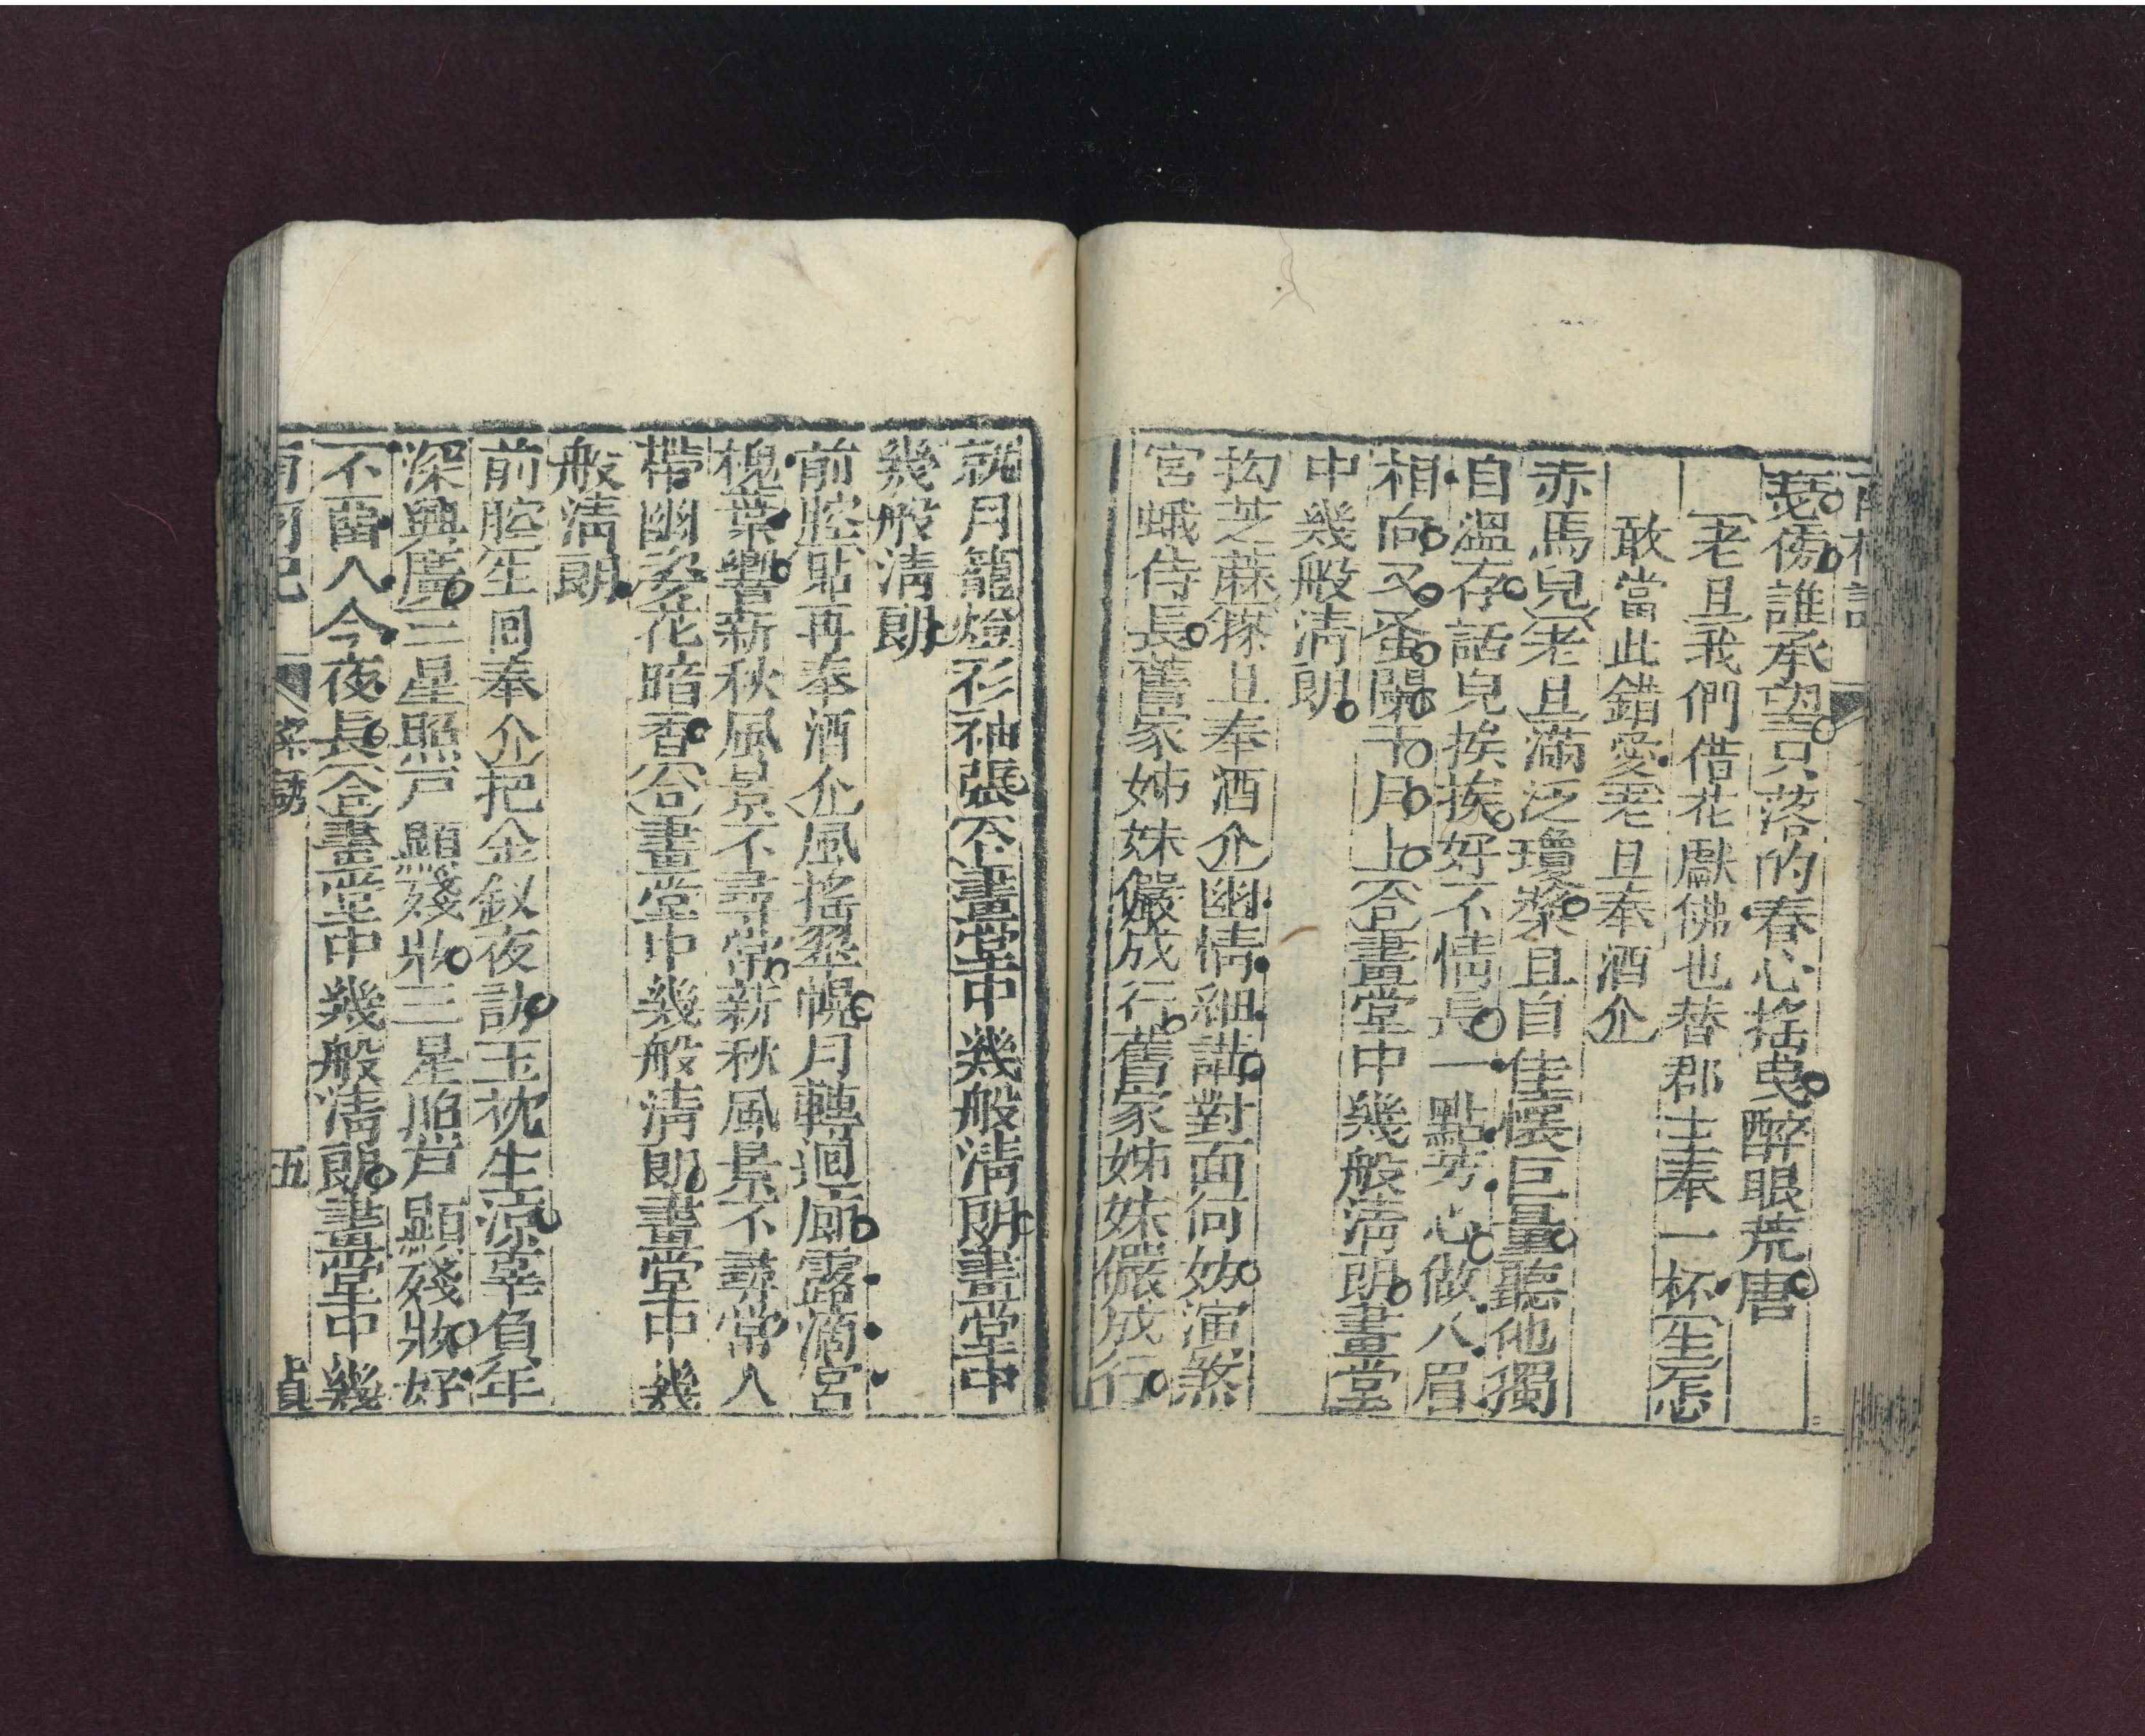 南柯記
瑟傍誰承望只落的春心搖曳醉眼荒唐
老旦我們借花獻佛也替郡主奉一杯生怎
敢當此錯愛老旦奉酒介
赤馬兒老旦滿泛瓊漿且自佳懷巨量聽他獨
自溫存話兒挨挨好不情長一點芳心做八眉
相向又蚤闌干月上合畫堂中幾般清朗畫堂
中幾般清朗
抝芝蔴貅旦奉酒介幽情細講對面何妨演煞
宮蛾侍長舊家姊妹儼成行舊家姊妹儼成行
就月籠燈衫袖張合畫堂中幾般清朗畫堂中
幾般清朗
前腔貼再奉酒介風搖翠幌月轉迴廊露滴宮
槐葉響新秋風景不尋常新秋風景不尋常人
帶幽姿花暗香合畫堂中幾般清朗畫堂中幾
般清朗
前腔生回奉介把金釵夜訪玉枕生涼辜負年
深興廣三星照戶顯殘妝三星照戶顯殘妝好
不畱人今夜長合畫堂中幾般清朗畫堂中幾
南柯記 粲誘 五 貞